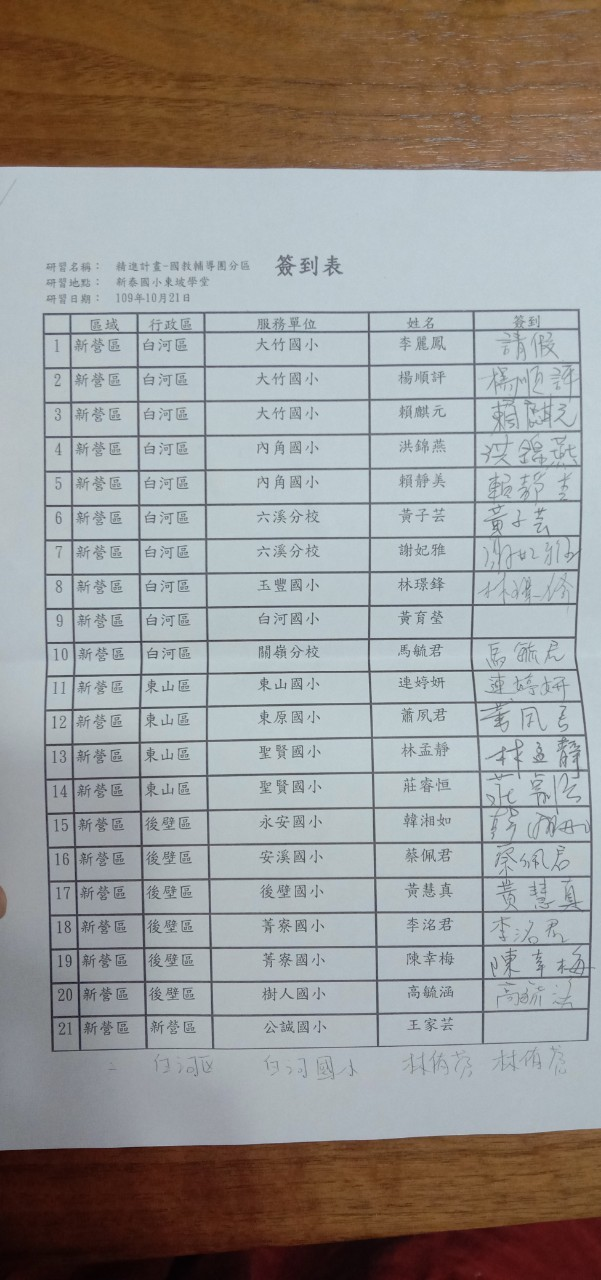 簽到表
研習名稱： 精進計畫-國教輔導團分區
研習地點： 新泰國小東坡學堂
研習日期： 109年10月21日
區域 行政區 服務單位 姓名 簽到
1 新營區 白河區 大竹國小 李麗鳳 請假
2 新營區 白河區 大竹國小 楊順評 楊順評
3 新營區 白河區 大竹國小 賴麒元 賴麒元
4 新營區 白河區 內角國小 洪錦燕 洪錦燕
5 新營區 白河區 內角國小 賴靜美 賴靜美
6 新營區 白河區 六溪分校 黃子芸 黃子芸
7 新營區 白河區 六溪分校 謝妃雅 謝妃雅
8 新營區 白河區 玉豐國小 林璟鋒 林璟鋒
9 新營區 白河區 白河國小 黃育瑩
10 新營區 白河區 關嶺分校 馬毓君 馬毓君
11 新營區 東山區 東山國小 連婷妍 連婷妍
12 新營區 東山區 東原國小 蕭夙君 蕭夙君
13 新營區 東山區 聖賢國小 林孟靜 林孟靜
14 新營區 東山區 聖賢國小 莊睿恒
15 新營區 後壁區 永安國小 韓湘如
16 新營區 後壁區 安溪國小 蔡佩君 蔡佩君
17 新營區 後壁區 後壁國小 黃慧真 黃慧真
18 新營區 後壁區 菁寮國小 李洺君 李洺君
19 新營區 後壁區 菁寮國小 陳幸梅 陳幸梅
20 新營區 後壁區 樹人國小 高毓涵 高毓涵
21 新營區 新營區 公誠國小 王家芸
白河区 白河國小